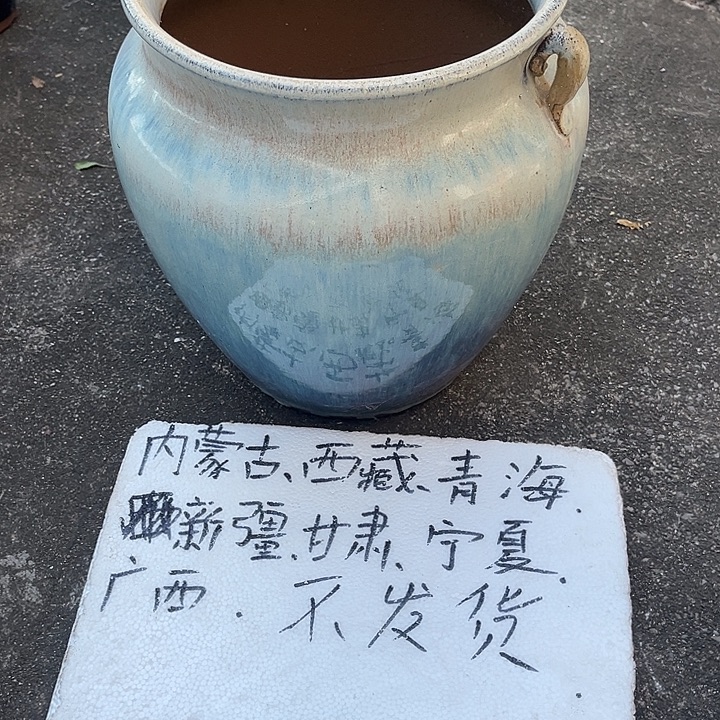 内蒙古、西藏、青海.
新疆、甘肃、宁夏.
广西. 不发货.